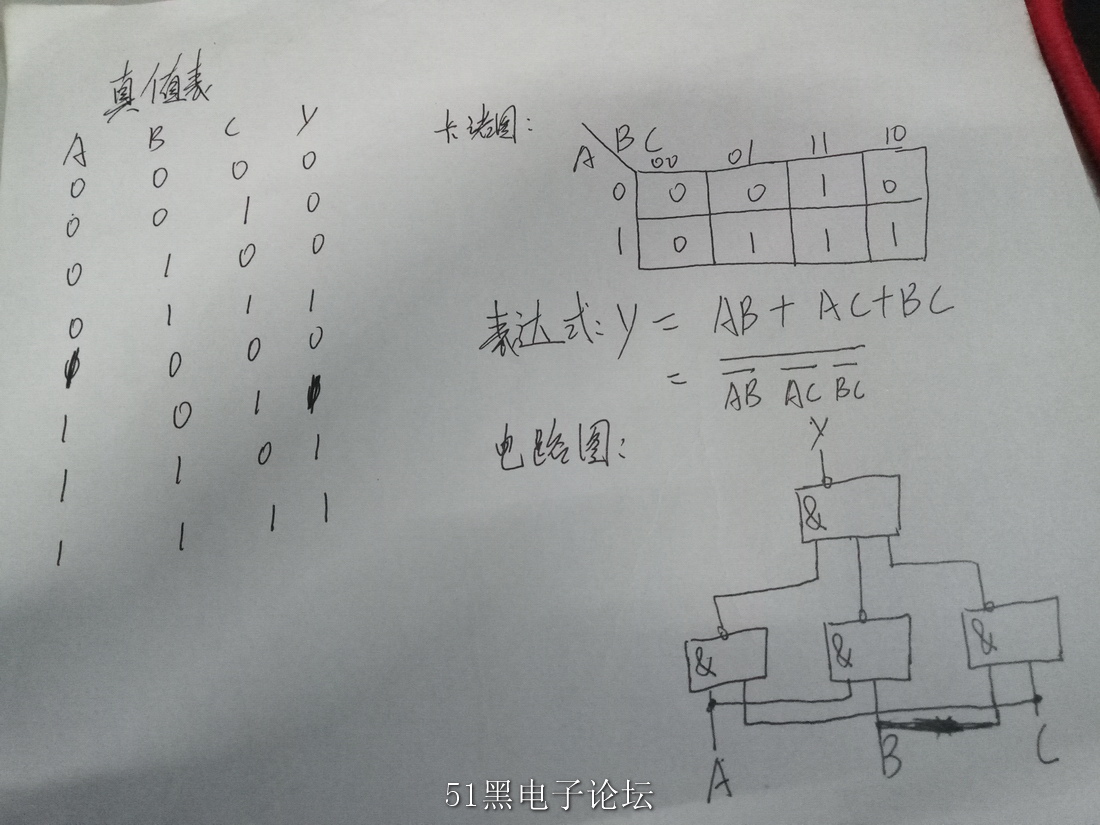 真值表
A B C Y
0 0 0 0
0 0 1 0
0 1 0 0
0 1 1 1
1 0 0 0
1 0 1 1
1 1 0 1
1 1 1 1
卡诺图:
A BC 00 01 11 10
0 0 0 1 0
1 0 1 1 1
表达式: Y = AB + AC + BC
= AB AC BC
电路图:
Y
&
& & &
A B C
51黑电子论坛